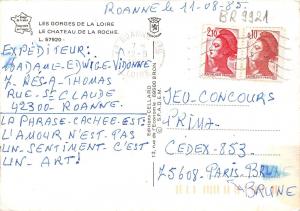 ROANNE le 11-08-85.
BR 9921
LES GORGES DE LA LOIRE
LE CHATEAU DE LA ROCHE.
L. 57920
EXPÉDITEUR:
MADAME-EDWIGE-VIDONNE
7-RESA-THOMAS
RUE-St CLAUDE
42300-ROANNE.
LA PHRASE-CACHEE-EST.
L'AMOUR N'EST-PAS
UN-SENTIMENT-C'EST
UN-ART!
Editions CELLARD
© S.P.A.D.E.M.
2,10
0,10
JEU-CONCOURS
PRIMA
CEDEX-853-
75608-PARIS-BRUNE
BRUNE